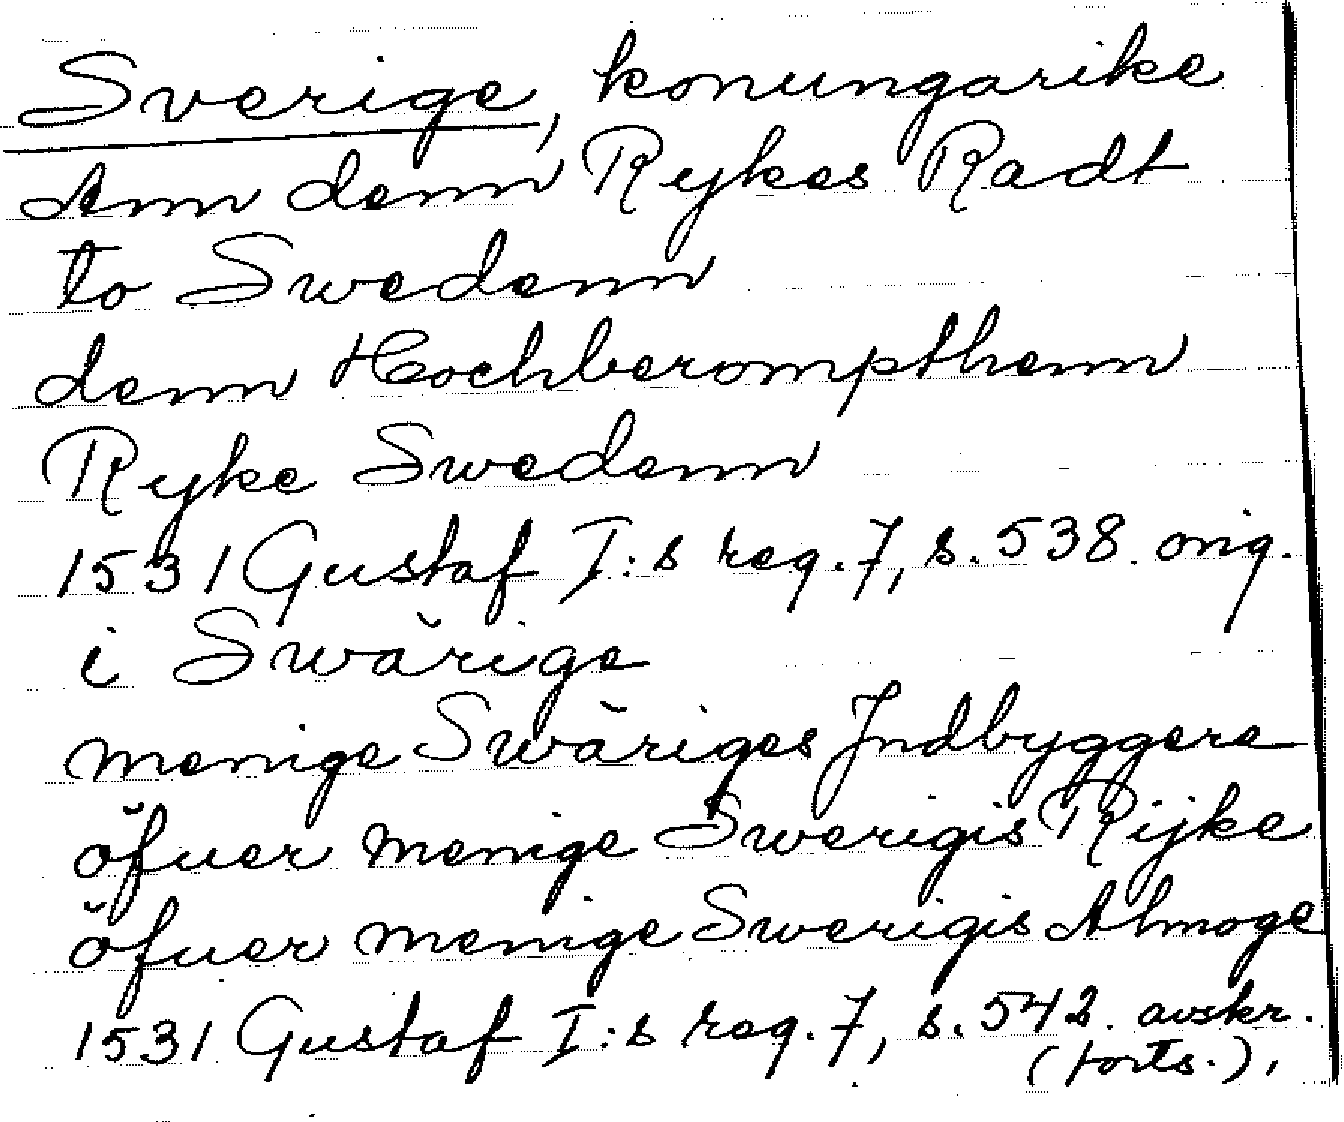 Sverige, konungarike
Ann denn Rykes Radt
to Swedenn
denn Hochberompthenn
Ryke Swedenn
1531 Gustaf I:s reg. 7, s. 538. orig.
i Swărige
menige Swăriges Jndbyggere
ŏfuer menige Swerigis Rijke
ŏfuer menige Swerigis Almoge
1531 Gustaf I:s reg. 7, s. 542. avskr.
(forts.),